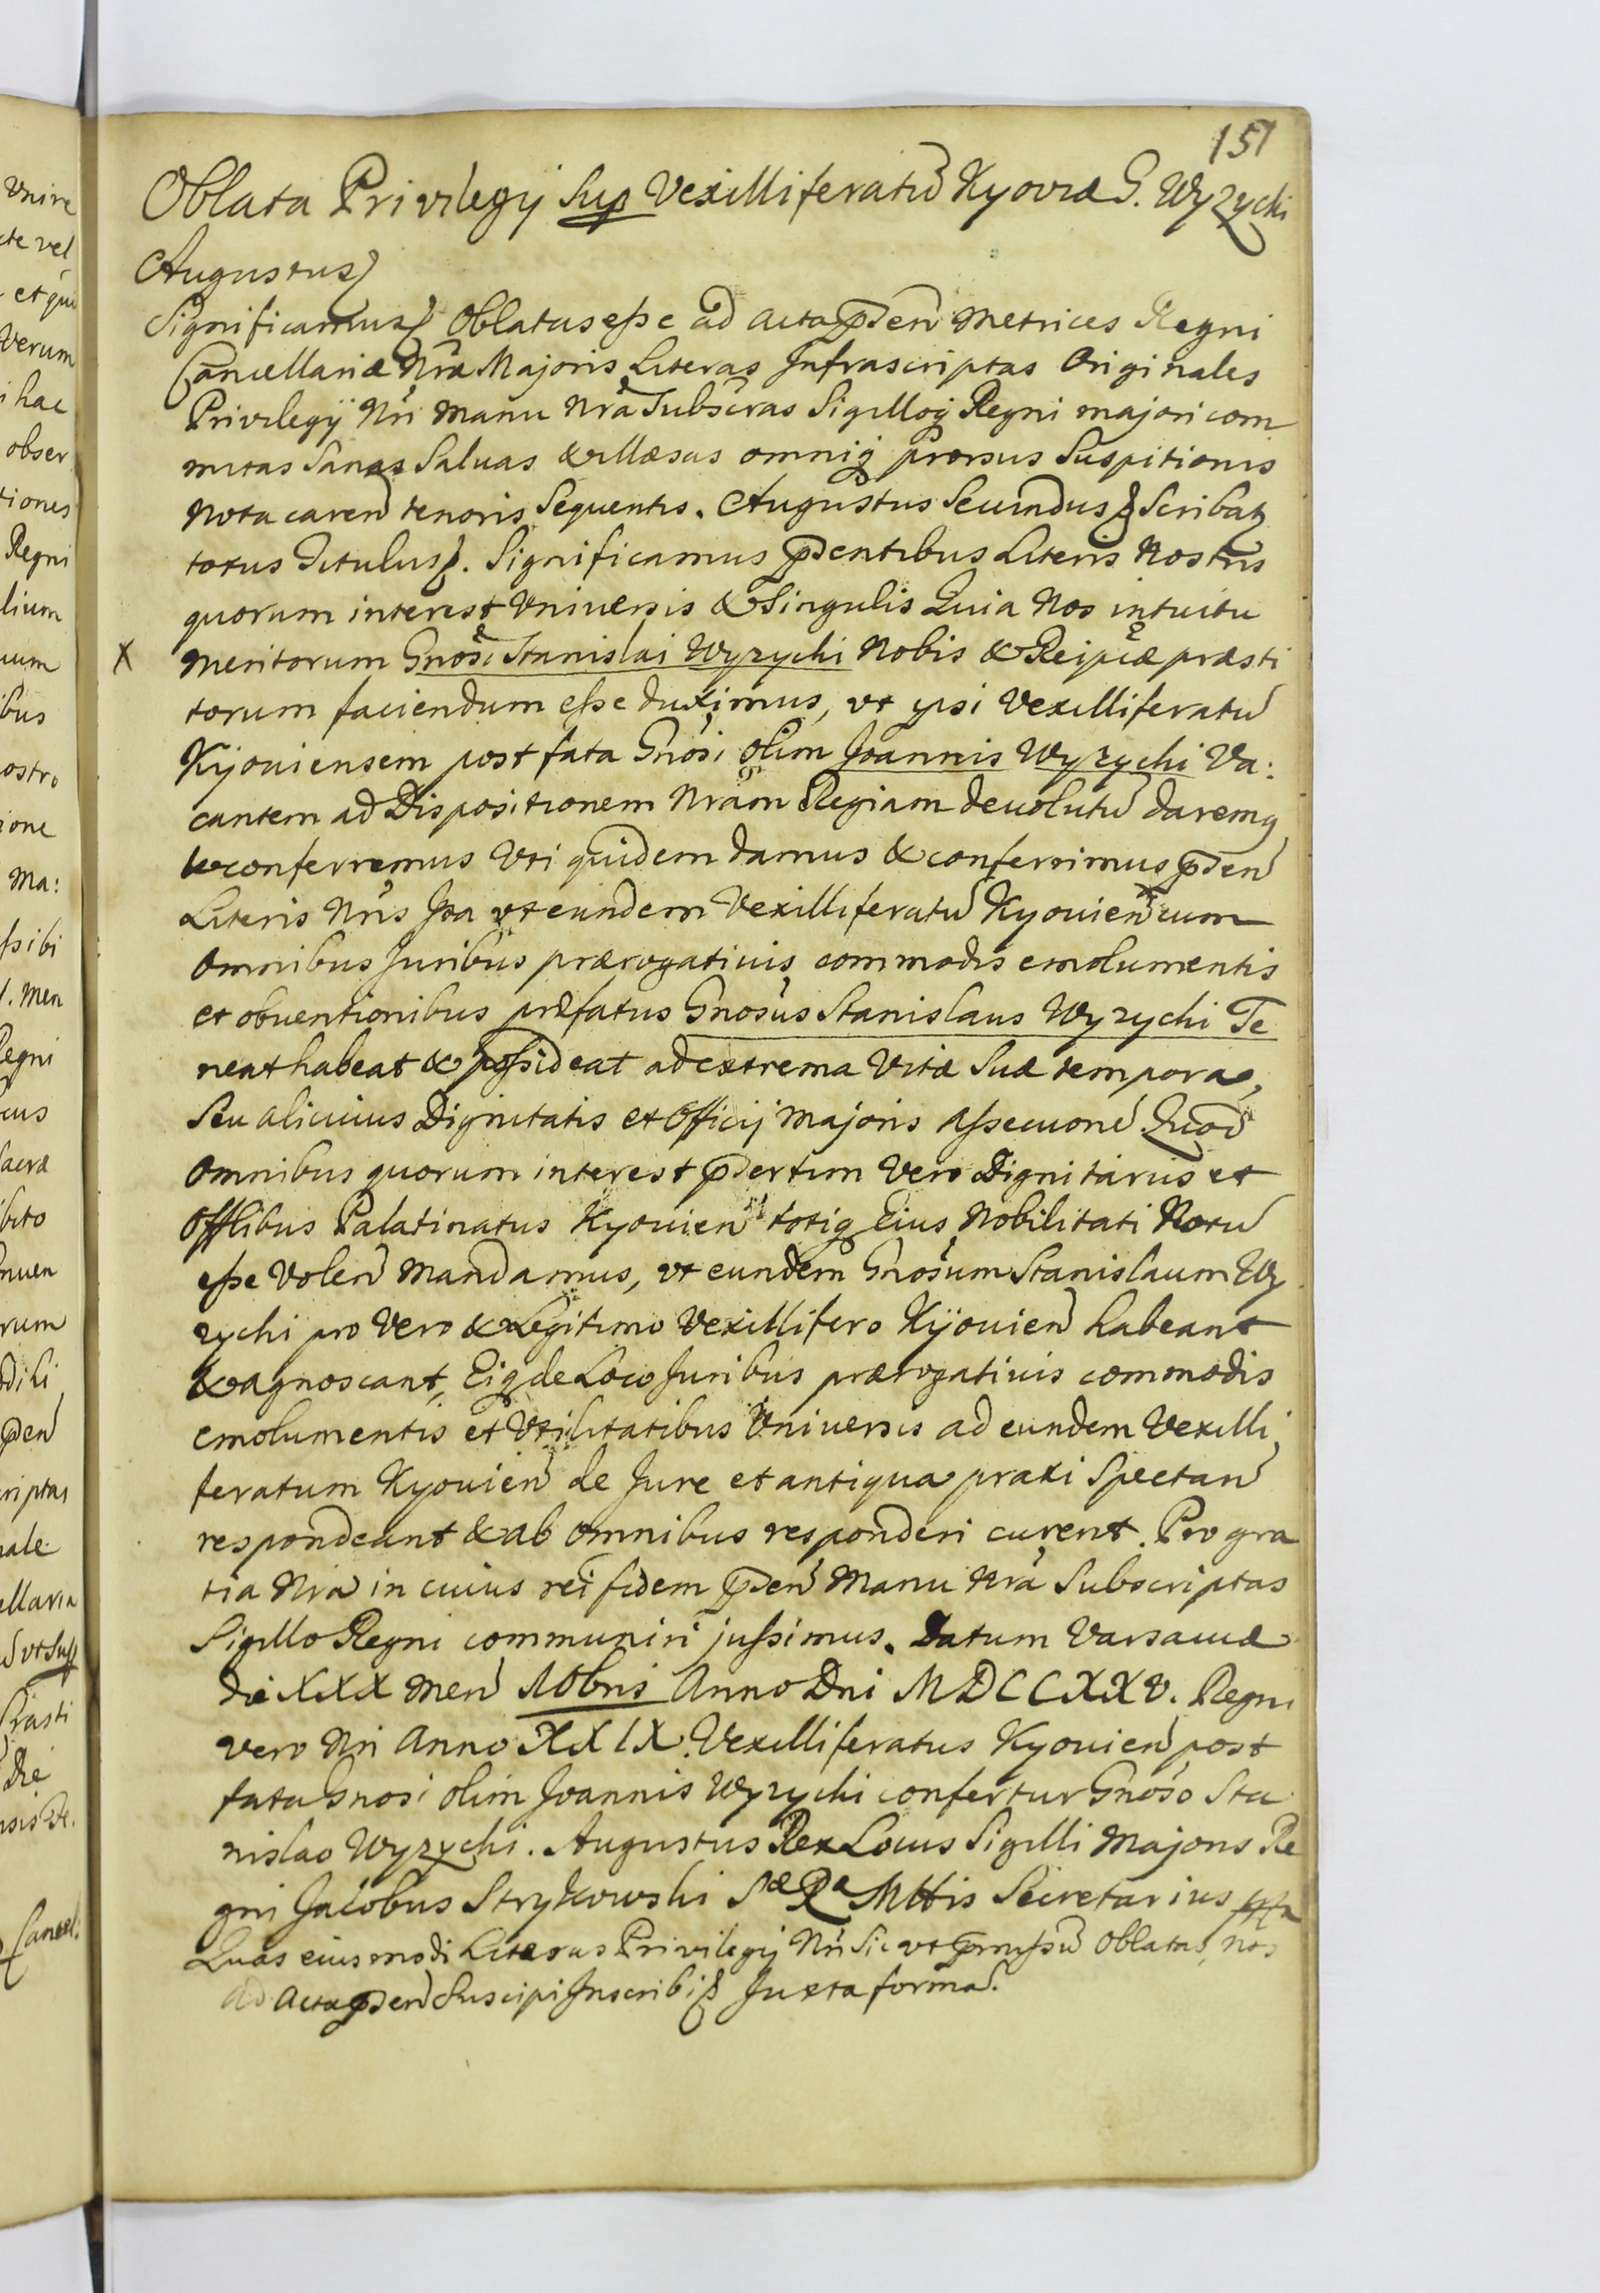 151
Oblata Privilegij Sup Vexilliferatu Kyoviæ G. Wyzychi
Augustus
Significamus Oblatas eße ad acta pnden Metrices Regni
Cancellariæ Nræ Majoris Literas Infrascriptas Originales
Privilegÿ Nri Manu Nra Subscras Sigilloq Regni majori com
mitas Sanas Saluas & illæsas omniq prorsus Suspitionis
Nota caren tenoris Sequentis. Augustus Secundus Scribat
totus Titulus. Significamus pndentibus Literis Nostris
quorum interest Vniuersis & Singulis Quia Nos intuitu
X Meritorum Gnosi Stanislai Wyzychi Nobis & Reipcæ præsti
torum faciendum eße duximus, vt ypsi Vexilliferatu
Kÿouiensem post fata Gnosi olim Joannis Wyzychi Va:
cantem ad Dispositionem Nram Regiam deuolutu daremq
conferremus Vti quidem damus & conferrimus pnden
Literis Nris Jta vt eundem Vexilliferatu Kyouien cum
Omnibus Juribus prærogatiuis commodis emolumentis
et obuentionibus præfatus Gnosus Stanislaus Wyzychi Te
neat habeat & poßideat ad extrema Vitæ Suæ tempora,
Seu alicuius Dignitatis et Officij Majoris aßecuone Quod
Omnibus quorum interest pndertim Vero Dignitarijs et
Offlibus Palatinatus Kyouien totiq Eius Nobilitati Notu
eße Volen Mandamus, vt eundem Gnosum Stanislaum Wy
zychi pro Vero & Legitimo Vexillifero Kÿouien habeant
& agnoscant, Eiq de Loco Juribus prærogatiuis commodis
emolumentis et Vtilitatibus Vniuersis ad eundem Vexilli
feratum Kyouien de Jure et antiqua praxi Spectan
respondeant & ab omnibus responderi curent. Pro gra
tia Nra in cuius rei fidem pnden Manu Nra Subscriptas
Sigillo Regni communiri jußimus. Datum Varsauiæ
die XXX Men Xbris Anno Dni MDCCXXV. Regni
vero Nri Anno XXIX. Vexilliferatus Kyouien post
fata Gnosi olim Joannis Wyzychi confertur Gnoso Sta
nislao Wyzychi. Augustus Rex Locus Sigilli Majoris Re
gni Jacobus Strykowski Sæ Ræ Mttis Secretarius
Quas eiusmodi Literas Privilegij Nri Sic vt pmißu Oblatas, nos
Ad Acta pnden Suscipi Inscribi Juxta forma.